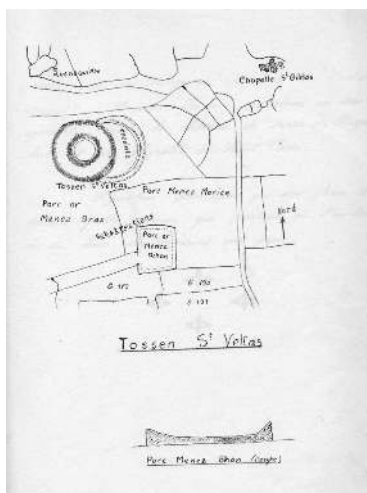 Chapelle St Gildas
Tossen St Veltas
Parc Menez Marice
Parc ar
Menez Bras
Substructions
Parc ar
Menez
Bihan
Nord
Tossen St Veltas
Parc Menez Bihan (Coupe)